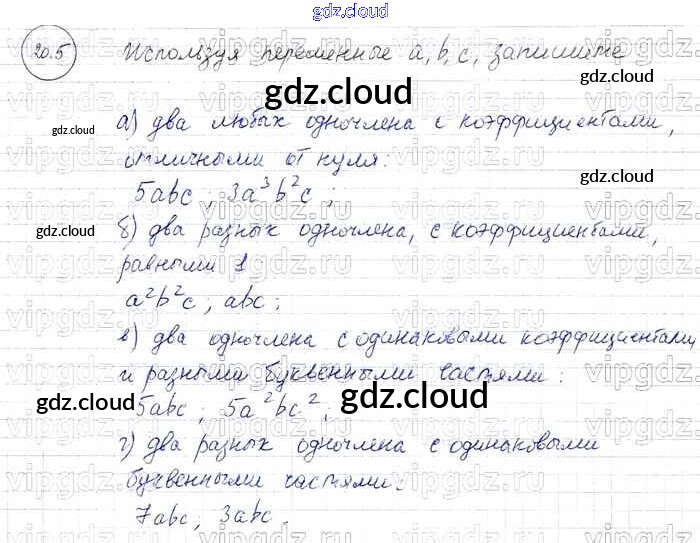 gdz.cloud
20.5 Используя переменные a, b, c, запишите
а) два любых одночлена с коэффициентами,
отличными от нуля:
5abc; 3a³b²c;
б) два разных одночлена, с коэффициентами,
равными 1
a²b²c; abc;
в) два одночлена с одинаковыми коэффициентами
и разными буквенными частями:
5abc; 5a²bc²;
г) два разных одночлена с одинаковыми
буквенными частями.
7abc; 3abc.